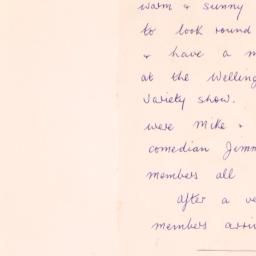 warm & sunny
to look round
& have a m
at the Welling
Variety show.
were Mike &
comedian Jimm
members all
After a ve
members arri